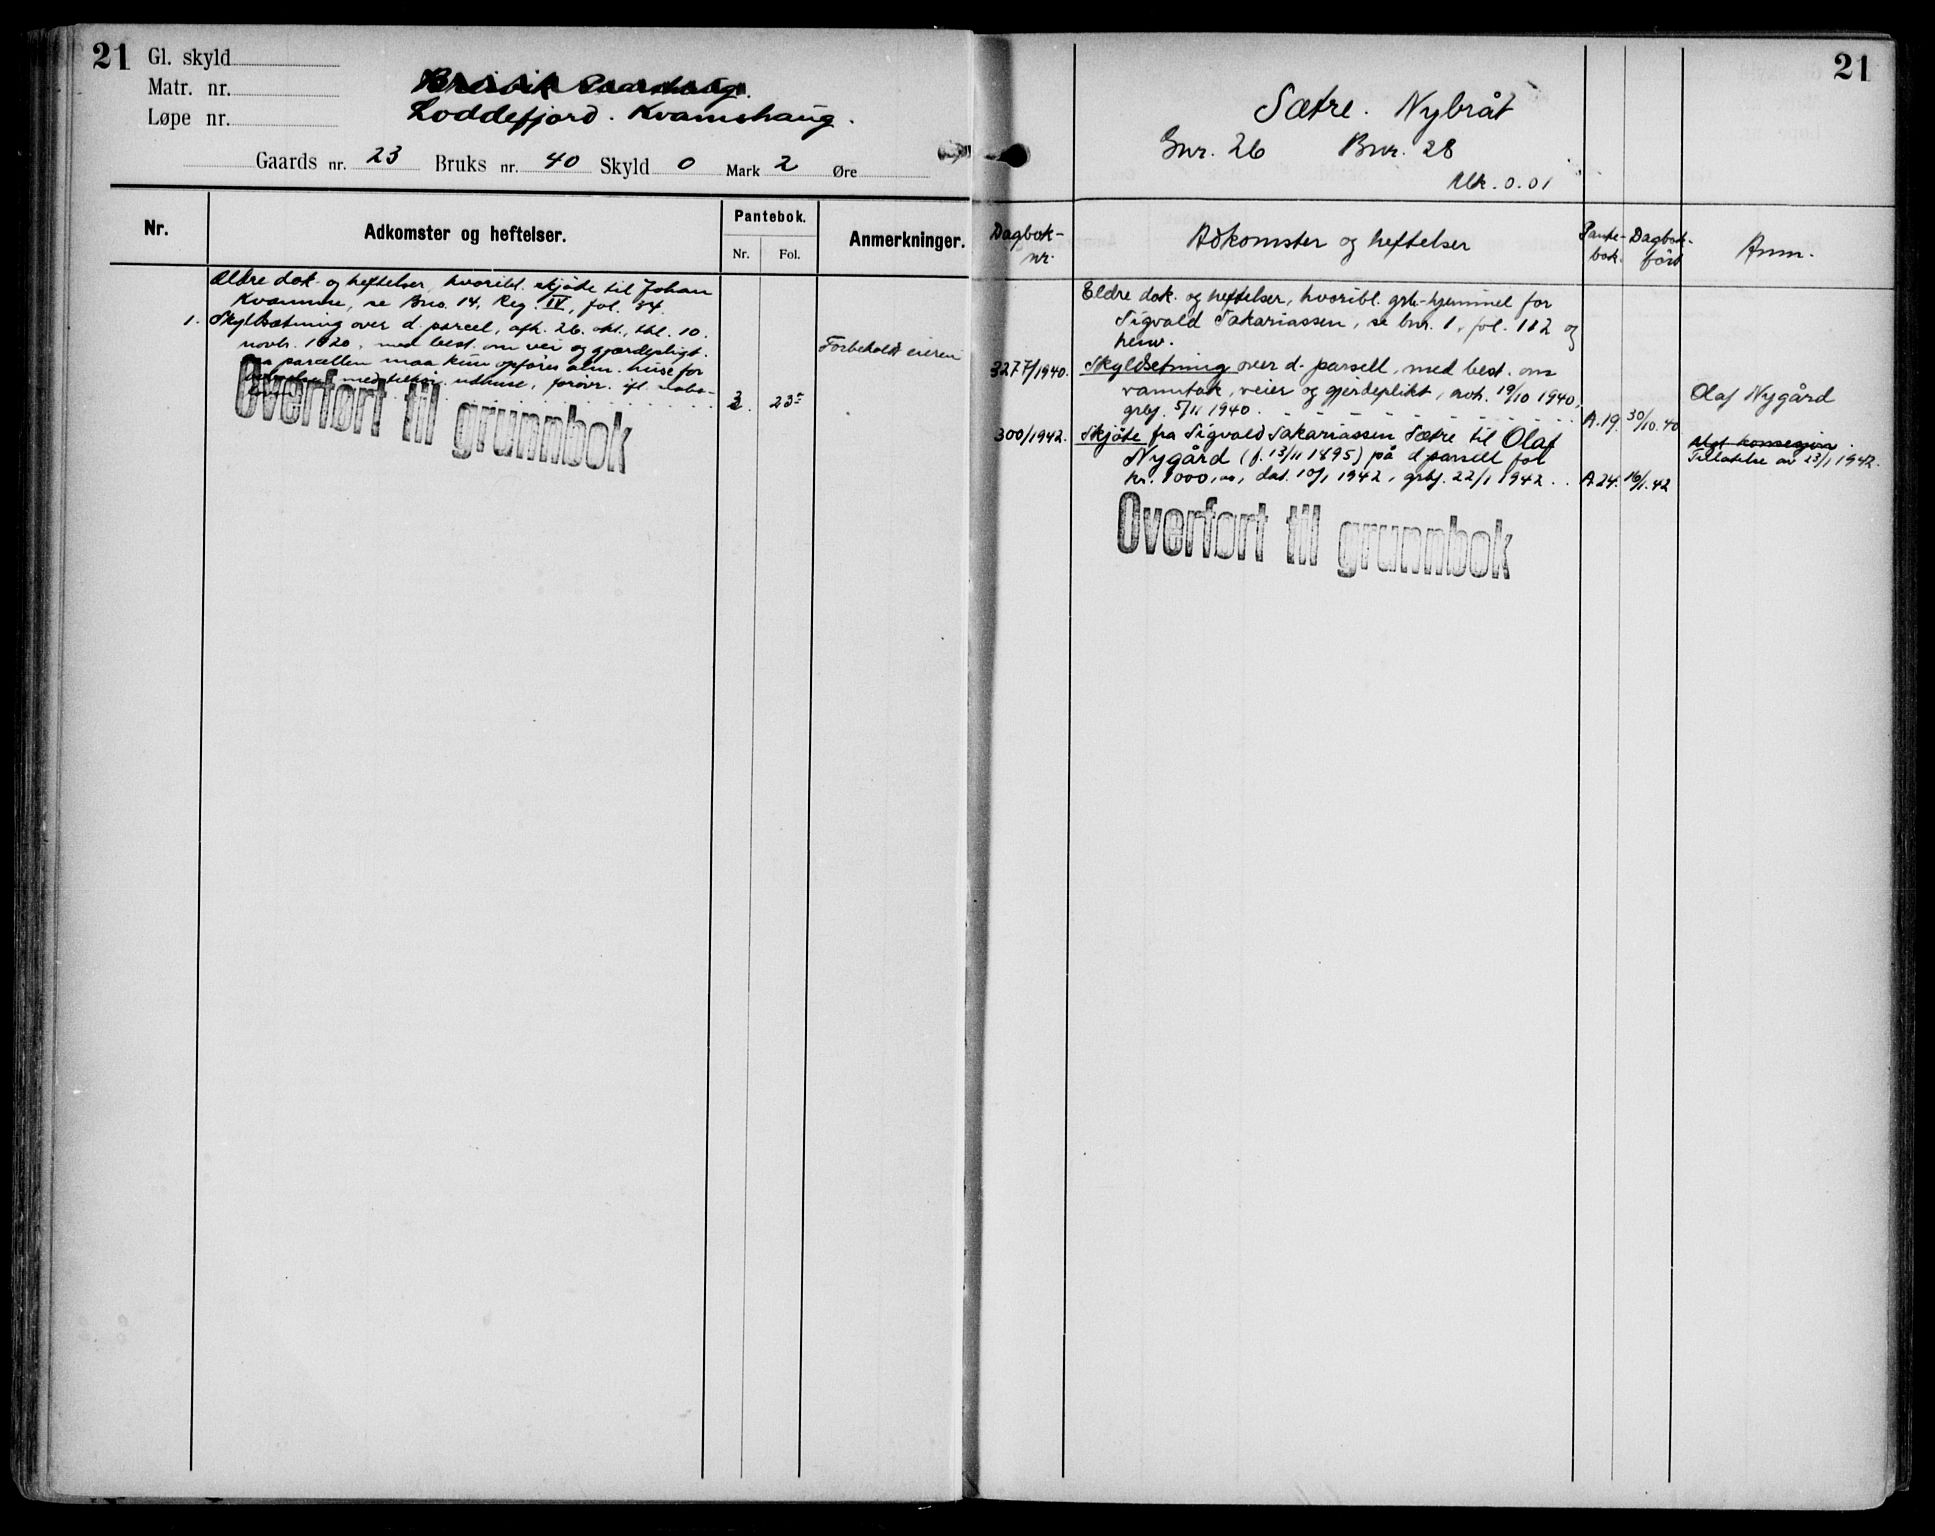 21
Gl. skyld
Matr. nr.
Løpe nr.
Loddefjord. Kvamshaug.
Gaards nr. 23 Bruks nr. 40 Skyld 0 Mark 2 Øre
Nr.
Adkomster og heftelser.
Pantebok.
Nr. Fol.
Anmerkninger.
Ældre dok. og heftelser, hvoribl. skjöte til Johan
Kvamme, se Bno. 14, Reg. IV, fol. 84.
1. Skyldsætning over d. parcel, afh. 26. okt., thl. 10.
novb. 1920, med best. om vei og gjærdepligt.
paa parcellen maa kun opføres alm. huse for
med udhuse, forøvr. ift. nabo-
3. 235
Forbeholdt eieren
Overført til grunnbok
21
Sætre. Nybråt
Gnr. 26 Bnr. 28
Mk. 0.01
Dagbok-
nr.
Adkomster og heftelser
Pante-
bok.
Dagbok-
förd
Anm.
Eldre dok. og heftelser, hvoribl. grb.-hjemmel for
Sigvald Sakariassen, se bnr. 1, fol. 182 og
henv.
3277/1940. Skyldsetning over d. parsell, med best. om
vanntak, veier og gjerdeplikt, avh. 19/10 1940,
grbf. 5/11 1940. A.19. 30/10.40
Olaf Nygård
300/1942. Skjöte fra Sigvald Sakariassen Sætre til Olaf
Nygård (f. 13/11 1895) på d. parsell for
kr. 1000,00, dat. 10/1 1942, grbf. 22/1 1942. A.24. 16/1.42
Mgl. konsesjon.
Tillatelse av 23/1 1942.
Overført til grunnbok